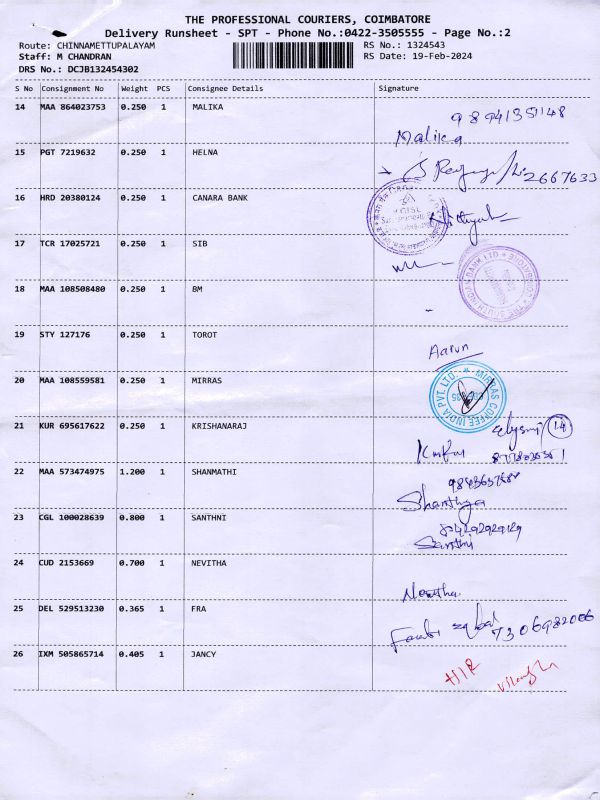 THE PROFESSIONAL COURIERS, COIMBATORE
Delivery Runsheet - SPT - Phone No.:0422-3505555 - Page No.:2
Route: CHINNAMETTUPALAYAM
RS No.: 1324543
Staff: M CHANDRAN
RS Date: 19-Feb-2024
DRS No.: DCJB132454302
S No Consignment No Weight PCS Consignee Details Signature
14 MAA 864023753 0.250 1 MALIKA
Malika
15 PGT 7219632 0.250 1 HELNA
2667633
16 HRD 20380124 0.250 1 CANARA BANK
17 TCR 17025721 0.250 1 SIB
THE SOUTH INDIAN BANK LTD
18 MAA 108508480 0.250 1 BM
19 STY 127176 0.250 1 TOROT
Aarun
20 MAA 108559581 0.250 1 MIRRAS
MIRRAS COFFEE INDIA PVT. LTD.
21 KUR 695617622 0.250 1 KRISHANARAJ
14
22 MAA 573474975 1.200 1 SHANMATHI
23 CGL 100028639 0.800 1 SANTHNI
Santhni
24 CUD 2153669 0.700 1 NEVITHA
25 DEL 529513230 0.365 1 FRA
7306982006
26 IXM 505865714 0.405 1 JANCY